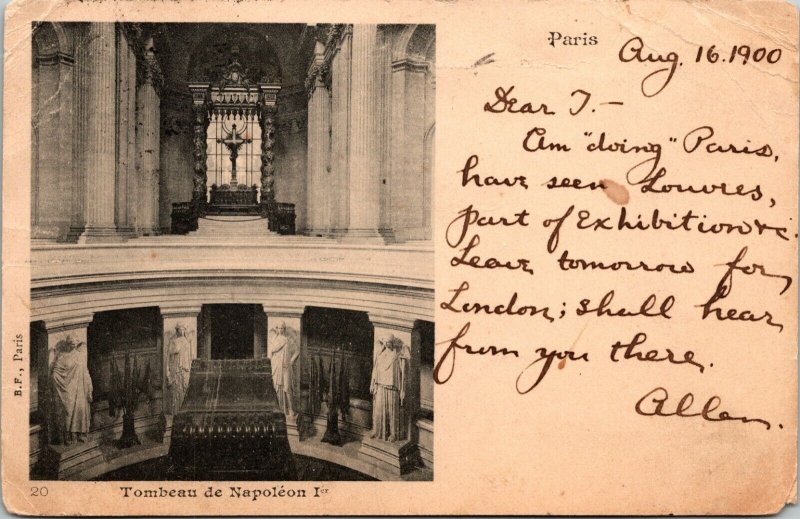 Paris
Aug. 16. 1900
Dear J. –
Am "doing" Paris,
have seen Louvres,
part of Exhibition &c.
Leave tomorrow for
London; shall hear
from you there.
Allen.
B.F., Paris
20 Tombeau de Napoléon Ier